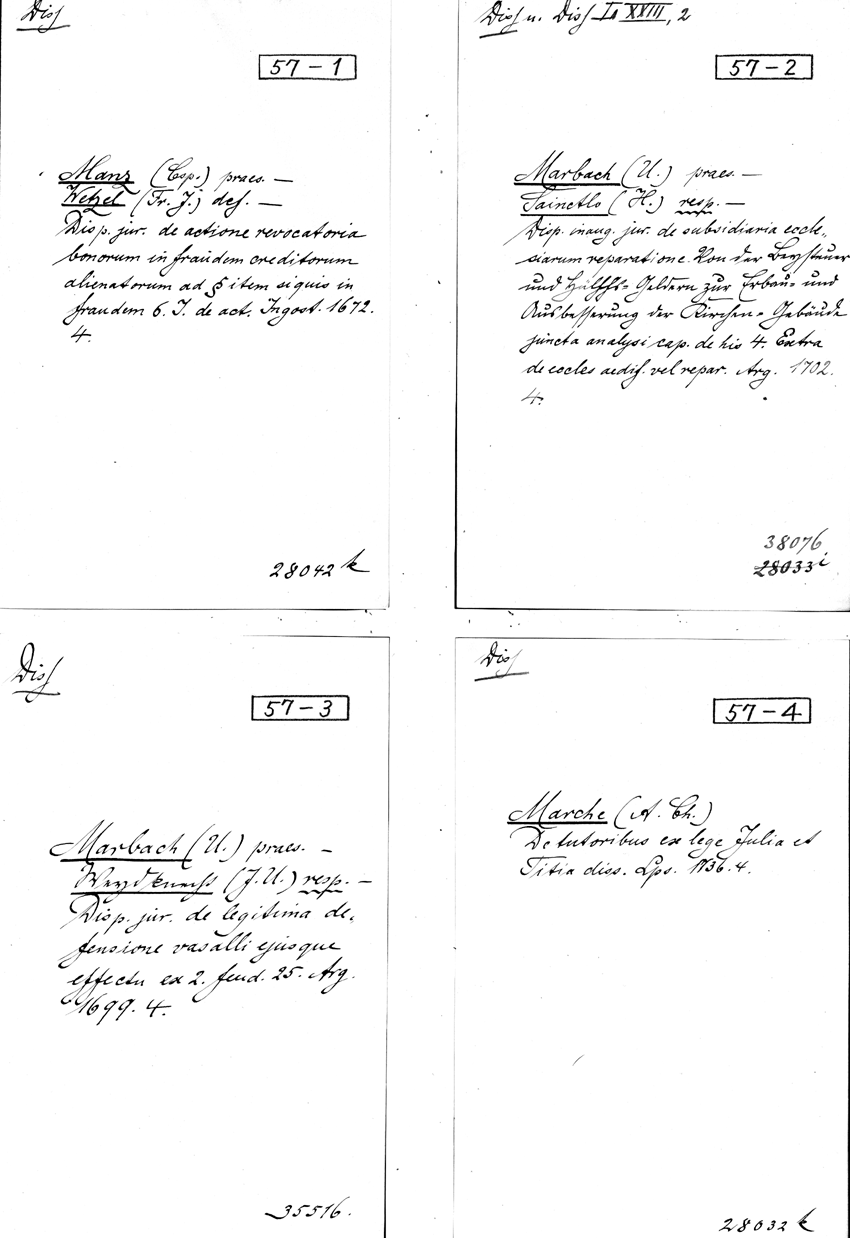 Diss
57-1
Manz (Csp.) praes. —
Wetzel (Fr. J.) def. —
Disp. jur. de actione revocatoria
bonorum in fraudem creditorum
alienatorum ad § item si quis in
fraudem 6. I. de act. Ingost. 1672.
4.
28042 k
Diss u. Diss Ia XXIII, 2
57-2
Marbach (U.) praes. —
Sainctlo (H.) resp. —
Disp. inaug. jur. de subsidiaria eccle-
siarum reparatione. Von der Beysteuer
und Hülffs-Geldern zur Erbau- und
Ausbesserung der Kirchen-Gebäude
juncta analysi cap. de his 4. Extra
de eccles aedif. vel repar. Arg. 1702.
4.
38076
28033 i
Diss
57-3
Marbach (U.) praes. —
Weydknecht (J. U.) resp. —
Disp. jur. de legitima de-
fensione vasalli ejusque
effectu ex 2. feud. 25. Arg.
1699. 4.
35516.
Diss
57-4
Marche (A. Ch.)
De tutoribus ex lege Julia et
Titia diss. Lps. 1736. 4.
28032 k